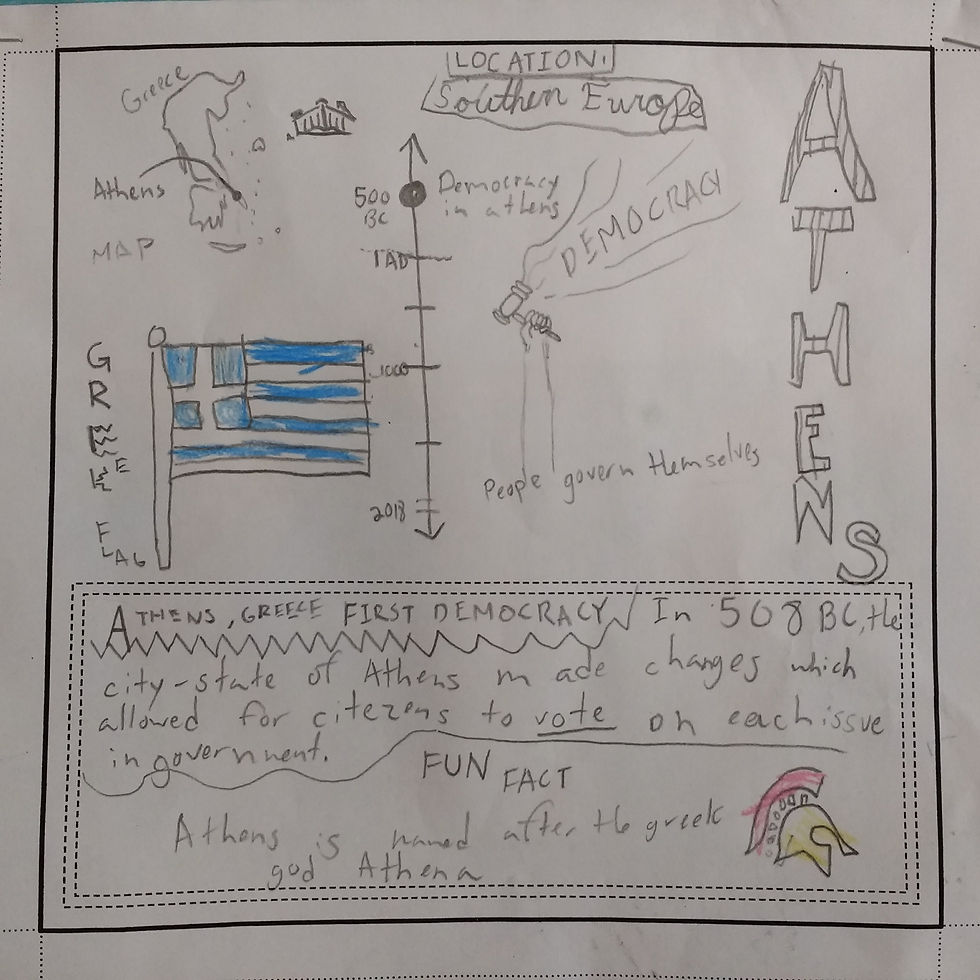 LOCATION:
Southen Europe
Greece
Athens
MAP
500
BC
Democracy
in athens
1AD
1000
2018
DEMOCRACY
People govern themselves
GREEK
FLAG
ATHENS
ATHENS, GREECE FIRST DEMOCRACY In 508 BC, the
city-state of Athens made changes which
allowed for citezens to vote on each issue
in government.
FUN FACT
Athens is named after the greek
god Athena